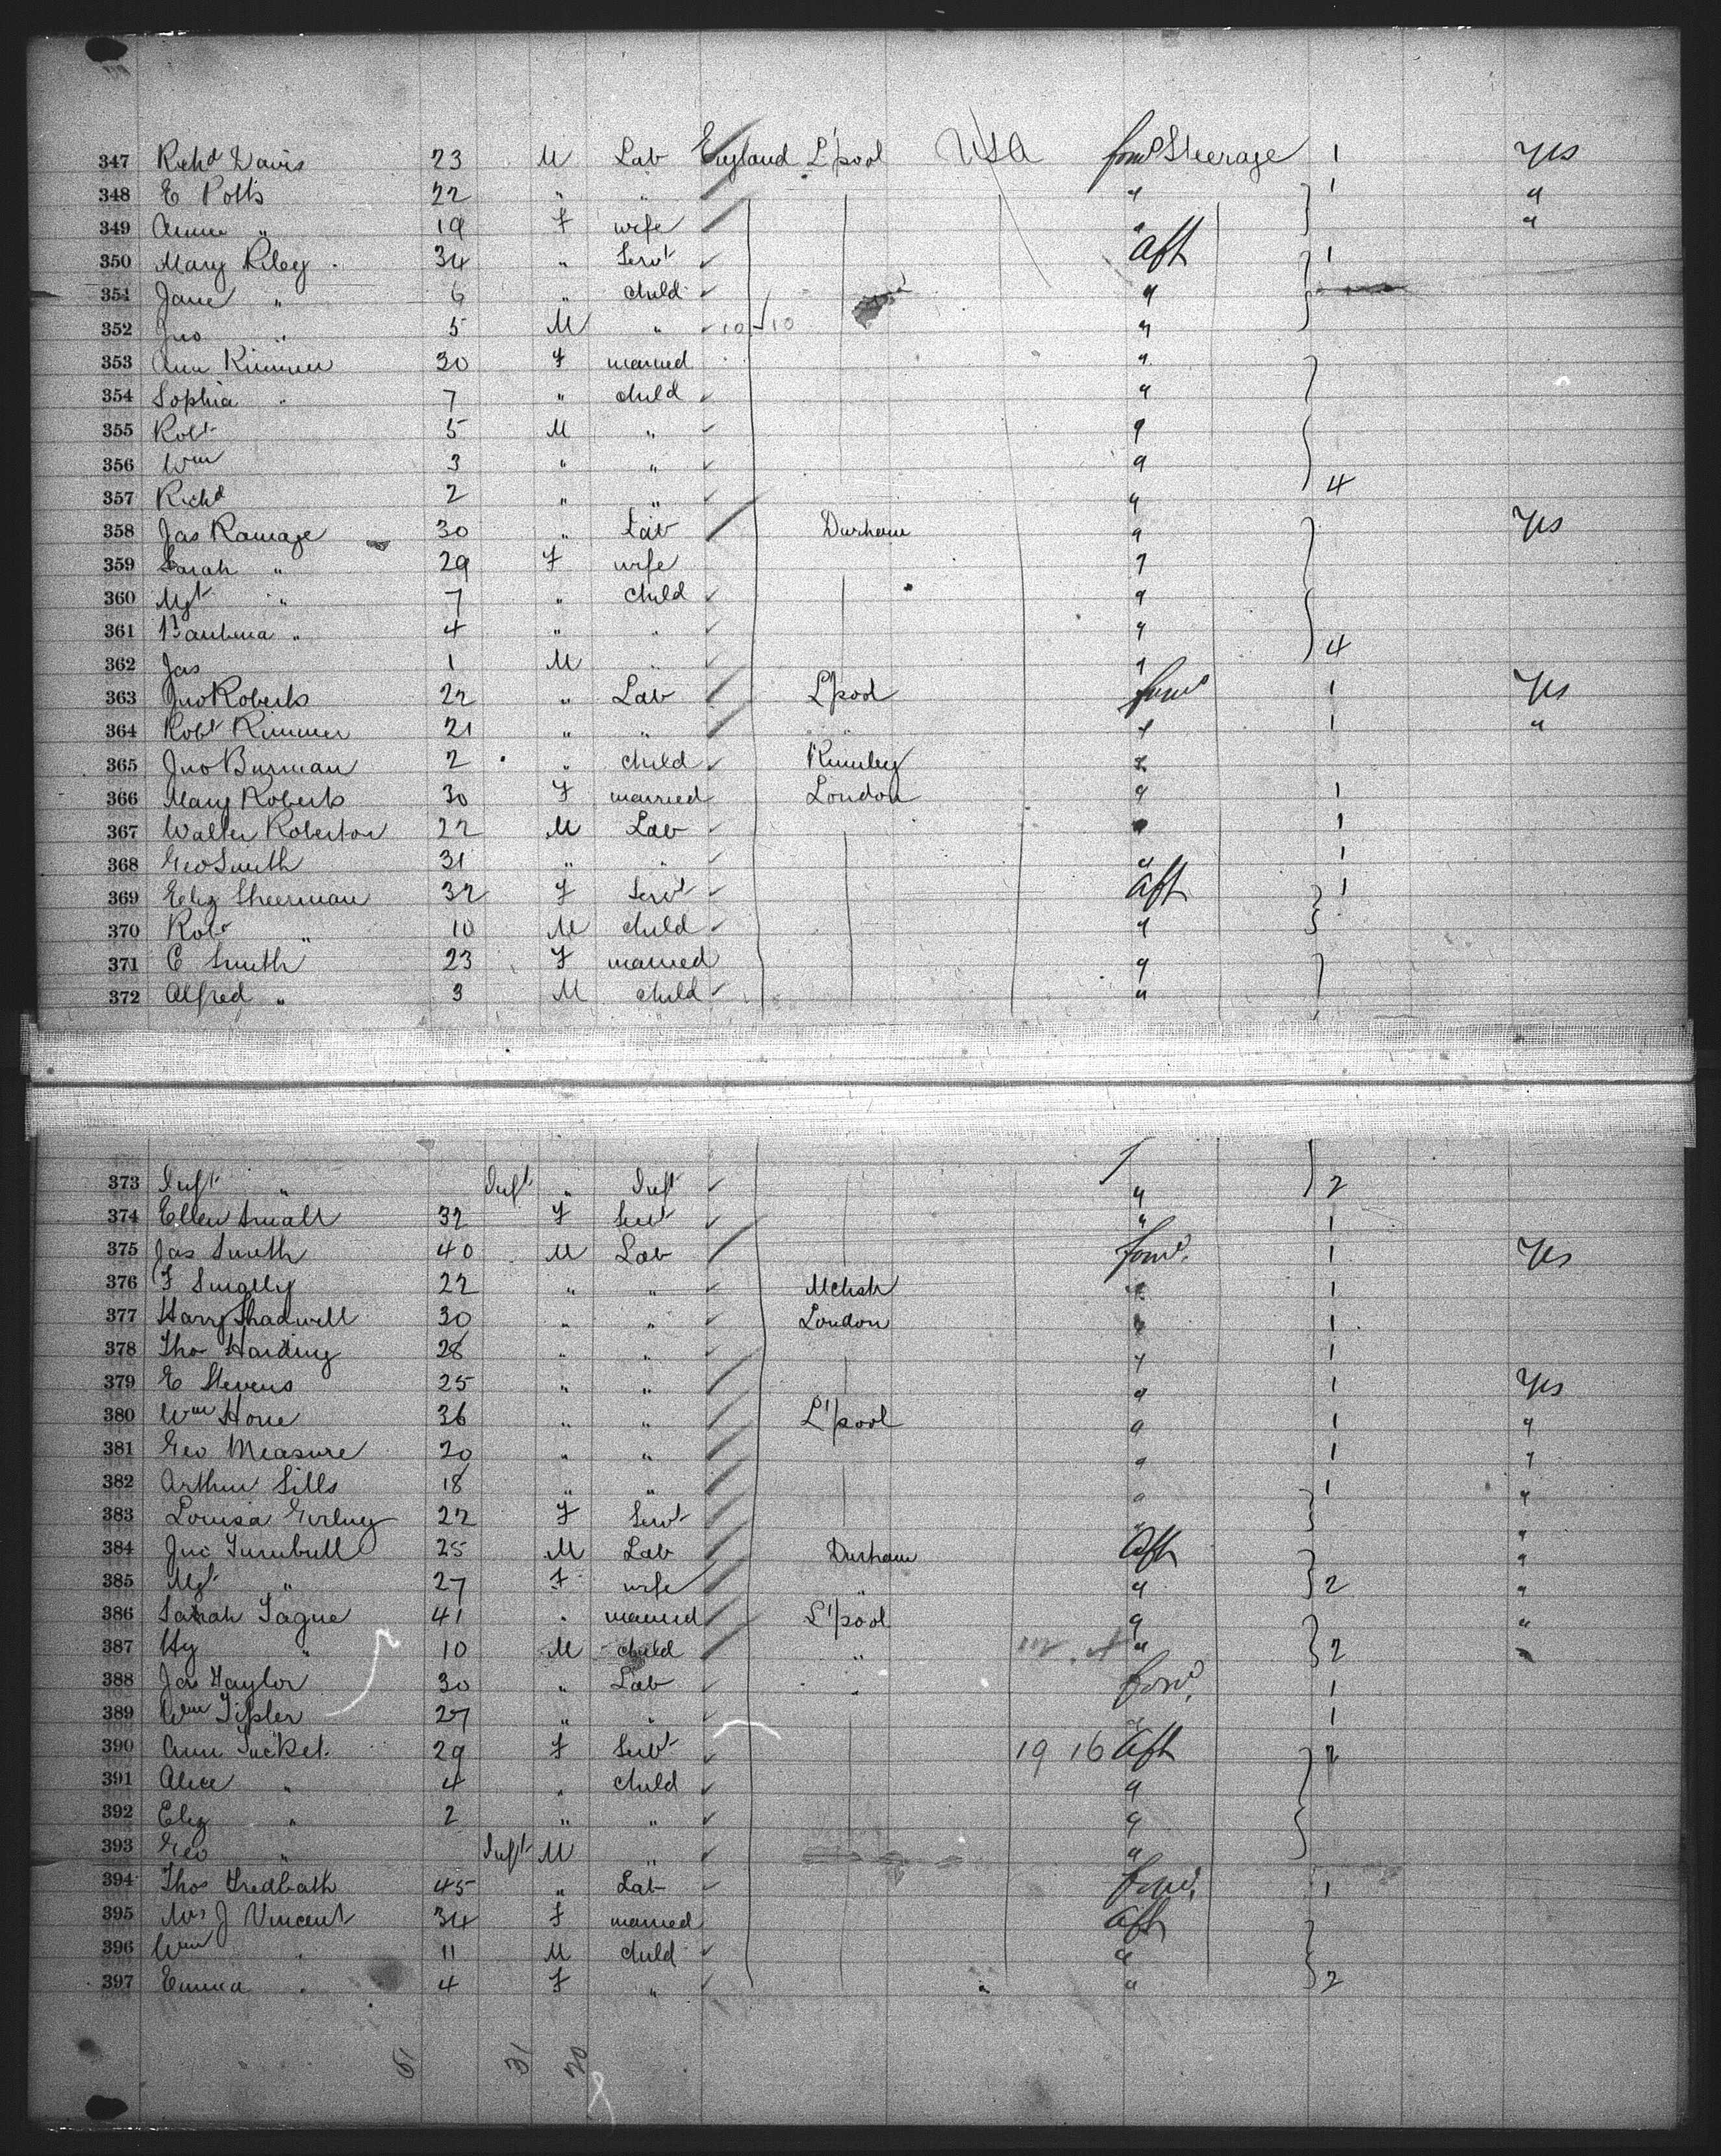 347 Richd Davis 23 M Lab England L'pool USA forwd Steerage 1 Yes
348 E Potts 22 " " " 1 "
349 Annie " 19 F wife " "
350 Mary Riley 34 " Servt Aft 1
351 Jane " 6 " child "
352 Jno " 5 M " 10 10 "
353 Ann Rimmer 30 F married "
354 Sophia " 7 " child "
355 Robt 5 M " "
356 Wm 3 " " "
357 Richd 2 " " " 4
358 Jas Ramage 30 " Lab Durham " Yes
359 Sarah " 29 F wife "
360 Mgt " 7 " child "
361 " 4 " " " 4
362 Jas 1 M " "
363 Jno Roberts 22 " Lab L'pool forwd 1 Yes
364 Robt Rimmer 21 " " " 1 "
365 Jno Burman 2 " child "
366 Mary Roberts 30 F married London " 1
367 Walter Roberton 22 M Lab " 1
368 Geo Smith 31 " " " 1
369 Eliz Sheerman 32 F Servt Aft 1
370 Robt " 10 M child "
371 C Smith 23 F married "
372 Alfred " 3 M child "
373 Inft " Inft " Inft " 2
374 Ellen Small 32 F Servt " 1
375 Jas Smith 40 M Lab forwd 1 Yes
376 F Smally 22 " " " 1
377 Harry Shadwell 30 " " London " 1
378 Tho Harding 28 " " " 1
379 E Stevens 25 " " " 1 Yes
380 Wm Hone 36 " " L'pool " 1 "
381 Geo Measure 20 " " " 1 "
382 Arthur Sills 18 " " " 1 "
383 Louisa Girling 22 F Servt " "
384 Jno Turnbull 25 M Lab Durham Aft "
385 Mgt " 27 F wife " " 2 "
386 Sarah Tague 41 " married L'pool " "
387 Hy " 10 M child " " 2 "
388 Jas Taylor 30 " Lab " forwd 1
389 Wm Tipler 27 " " " 1
390 Ann Tucket 29 F Servt 19 16 Aft 2
391 Alice " 4 " child "
392 Eliz " 2 " " "
393 Geo " Inft M " "
394 Thos Tredbath 45 " Lab forwd 1
395 Mrs J Vincent 34 F married Aft
396 Wm " 11 M child "
397 Emma " 4 F " " 2
31 20